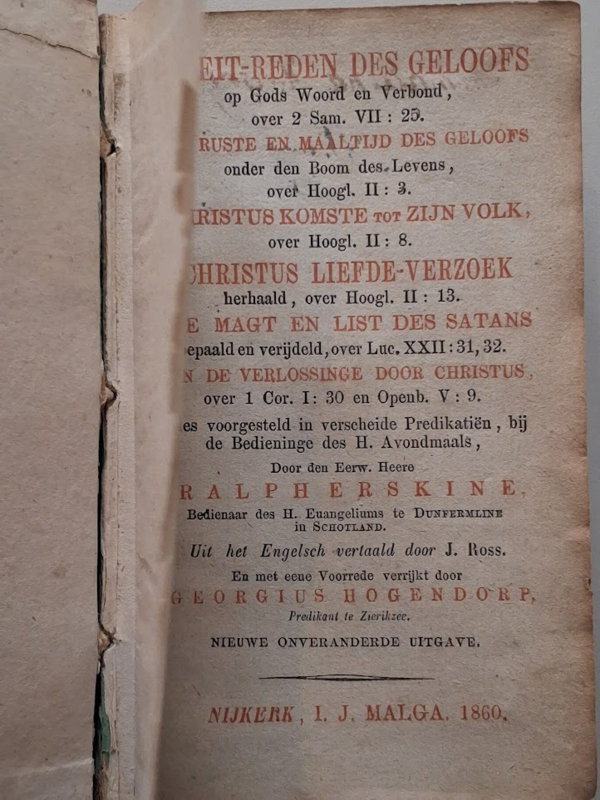 EIT-REDEN DES GELOOFS
op Gods Woord en Verbond,
over 2 Sam. VII: 25.
RUSTE EN MAALTIJD DES GELOOFS
onder den Boom des Levens,
over Hoogl. II: 3.
RISTUS KOMSTE TOT ZIJN VOLK,
over Hoogl. II: 8.
CHRISTUS LIEFDE-VERZOEK
herhaald, over Hoogl. II: 13.
E MAGT EN LIST DES SATANS
epaald en verijdeld, over Luc. XXII: 31, 32.
N DE VERLOSSINGE DOOR CHRISTUS,
over 1 Cor. I: 30 en Openb. V: 9.
es voorgesteld in verscheide Predikatiën, bij
de Bedieninge des H. Avondmaals,
Door den Eerw. Heere
RALPH ERSKINE,
Bedienaar des H. Euangeliums te DUNFERMLINE
in SCHOTLAND.
Uit het Engelsch vertaald door J. Ross.
En met eene Voorrede verrijkt door
GEORGIUS HOGENDORP,
Predikant te Zierikzee.
NIEUWE ONVERANDERDE UITGAVE.
NIJKERK, I. J. MALGA. 1860.